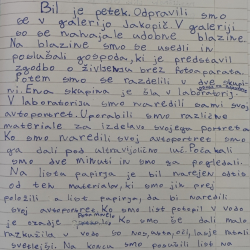 Bil je petek. Odpravili smo
se v galerijo Jakopič. V galeriji
so se nahajale udobne blazine.
Na blazine smo se usedli in
poslušali gospoda, ki je predstavil
zgodbo o življenju brez fotoaparata.
Potem smo se razdelili v dve skupi
ni. Ena skupina je šla v laboratorij.
V laboratoriju smo naredili sami svoj
avtoportret. Uporabili smo različne
materiale za izdelavo svojega portreta.
Ko smo naredili svoj avtoportret smo
ga dali pod ultravijolično luč. Počakali
smo dve minuti in smo pa pogledali.
Na lista papirja je bil narejen odtis
od teh materialov, ki smo jih prej
položili a list papirja, da bi naredili
svoj avtoportret. Ko smo list potopil v vodo
je ozadje Ko smo še dali malo
razkužila v vodo so nos, usta, oči, lasje ratali
svetlejši. Na koncu smo posušili list na